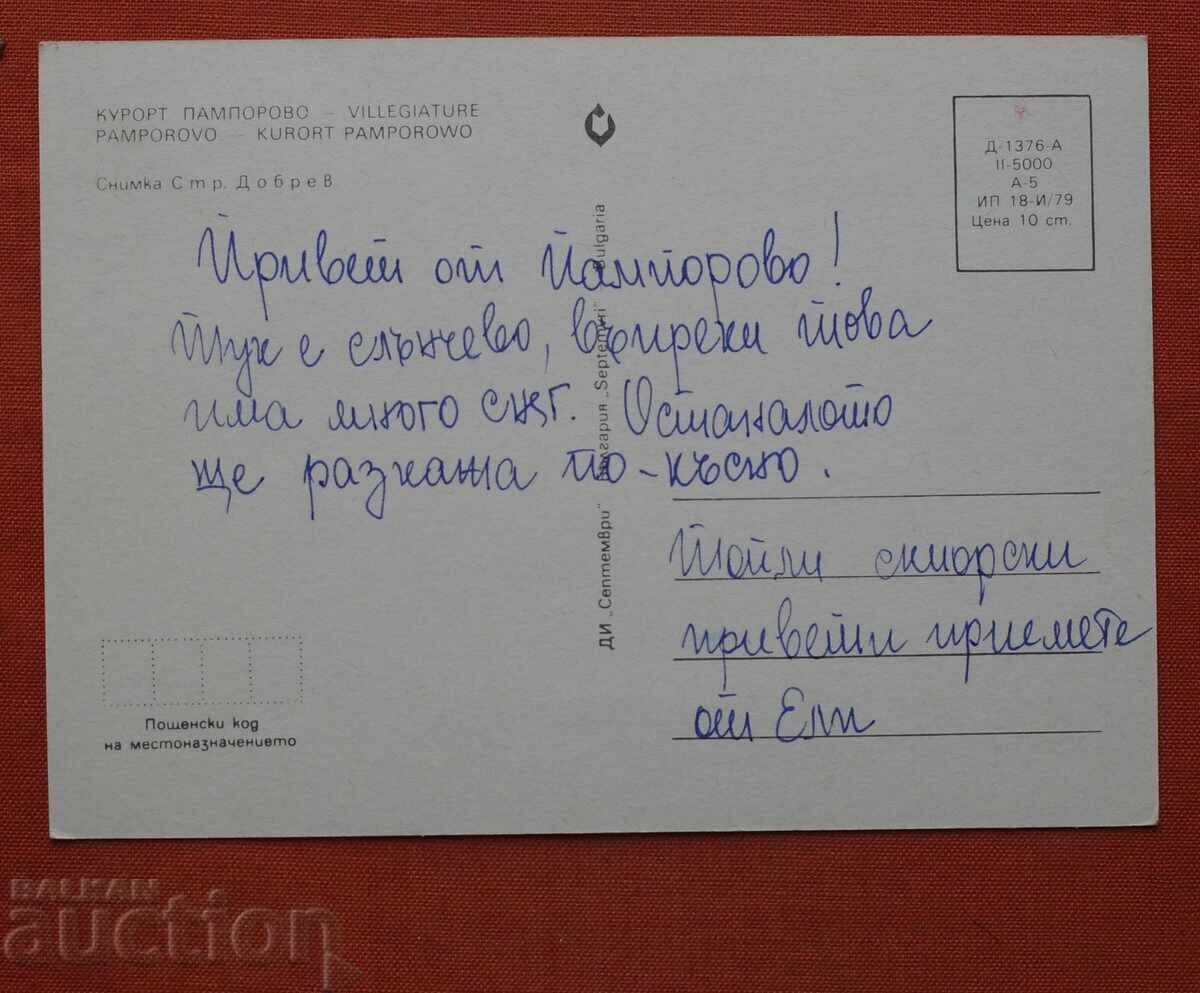 КУРОРТ ПАМПОРОВО – VILLEGIATURE
PAMPOROVO – KURORT PAMPOROWO
Снимка Стр. Добрев
Д-1376-А
II-5000
А-5
ИП 18-И/79
Цена 10 ст.
Привет от Пампорово!
Тук е слънчево, въпреки това
има много сняг. Останалото
ще разкажа по-късно.
ДИ „Септември" България „Septemvri" Bulgaria
Топли скиорски
привети приемете
от Ели
Пощенски код
на местоназначението
BALKAN
auction